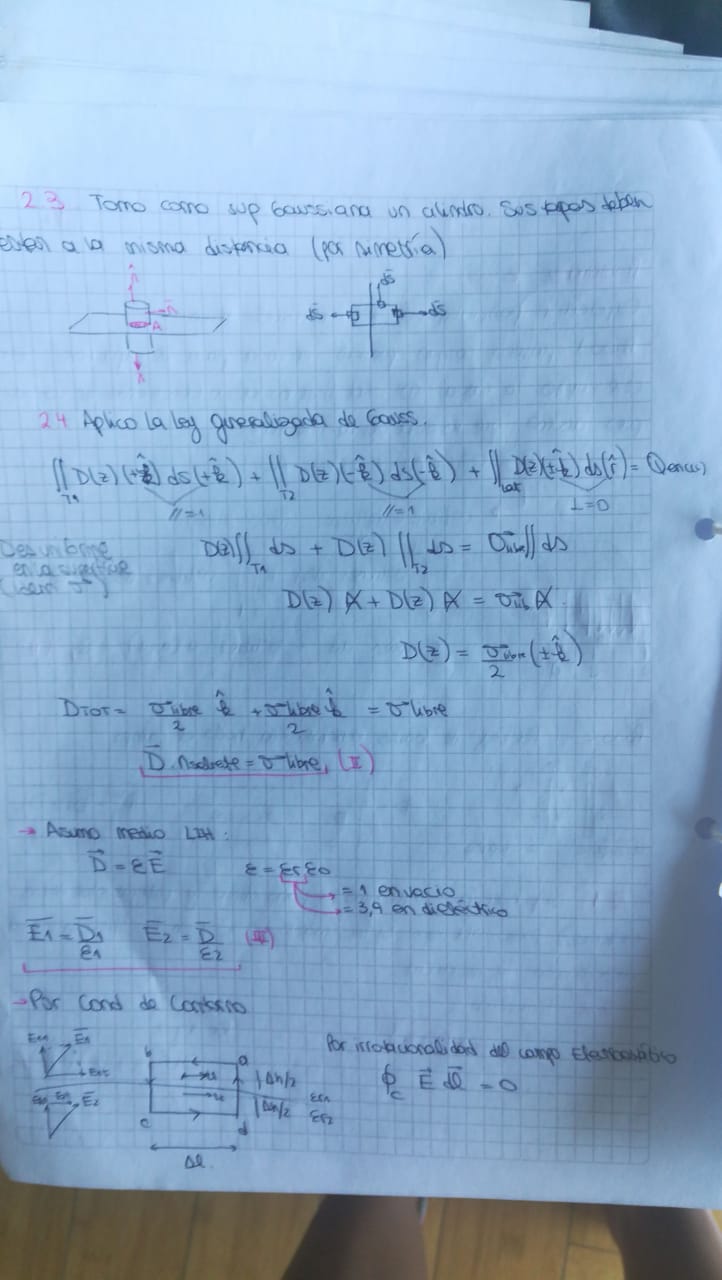 2.3 Tomo como sup Gaussiana un cilindro. Sus tapas deben
estar a la misma distancia (por simetría)
n̂
n̂
A
n̂
d̄s
d̄s
d̄s
2.4 Aplico la Ley generalizada de Gauss.
∬_T1 D(z)(+k̂) ds(+k̂) + ∬_T2 D(z)(-k̂) ds(-k̂) + ∬_Lat D(z)(±k̂) ds(r̂) = Qenc
//=1 //=1 ⊥=0
D es uniforme
en la superficie
(idem σ)
D(z)∬_T1 ds + D(z)∬_T2 ds = σlibre ∬ ds
D(z) A + D(z) A = σlib A
D(z) = σlibre/2 (±k̂)
DTOT = σlibre/2 k̂ + σlibre/2 k̂ = σlibre
D̄. nsaliente = σlibre, (II)
→ Asumo medio LIH:
D⃗ = εE⃗ ε = εr ε0
= 1 en vacio
= 3,9 en dieléctrico
E̅1 = D̅1/ε1 E̅2 = D̅/ε2 (III)
→ Por Cond de Contorno
En1 E̅1 Et1
E̅2
b a
Δn/2
Δn/2
εr1
εr2
c d
Δl
Por irrotacionalidad del campo Electrostático
∮c E̅ d̅l = 0